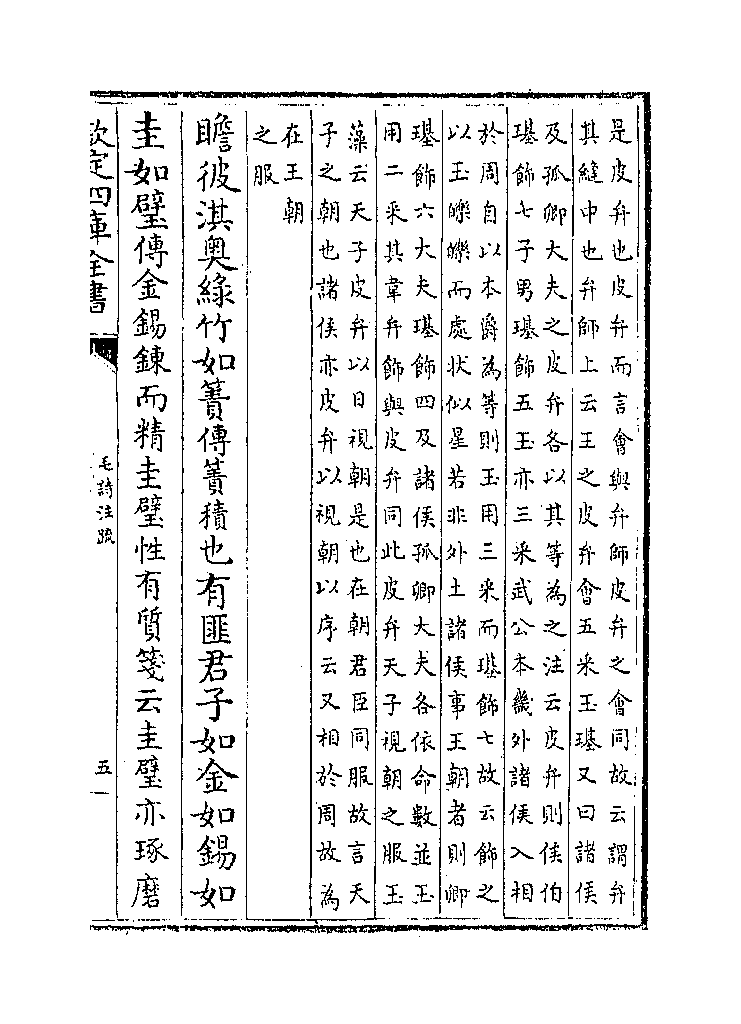 是皮弁也皮弁而言會與弁師皮弁之會同故云謂弁
其縫中也弁師上云王之皮弁會五采玉璂又曰諸侯
及孤卿大夫之皮弁各以其等為之注云皮弁則侯伯
璂飾七子男璂飾五玉亦三采武公本畿外諸侯入相
於周自以本爵為等則玉用三采而璂飾七故云飾之
以玉皪皪而處狀似星若非外土諸侯事王朝者則卿
璂飾六大夫璂飾四及諸侯孤卿大夫各依命數並玉
用二采其韋弁飾與皮弁同此皮弁天子視朝之服玉
藻云天子皮弁以日視朝是也在朝君臣同服故言天
子之朝也諸侯亦皮弁以視朝以序云又相於周故為
在王朝
之服
瞻彼淇奧綠竹如簀傳簀積也有匪君子如金如錫如
圭如璧傳金錫鍊而精圭璧性有質箋云圭璧亦琢磨
欽定四庫全書
毛詩注疏
五